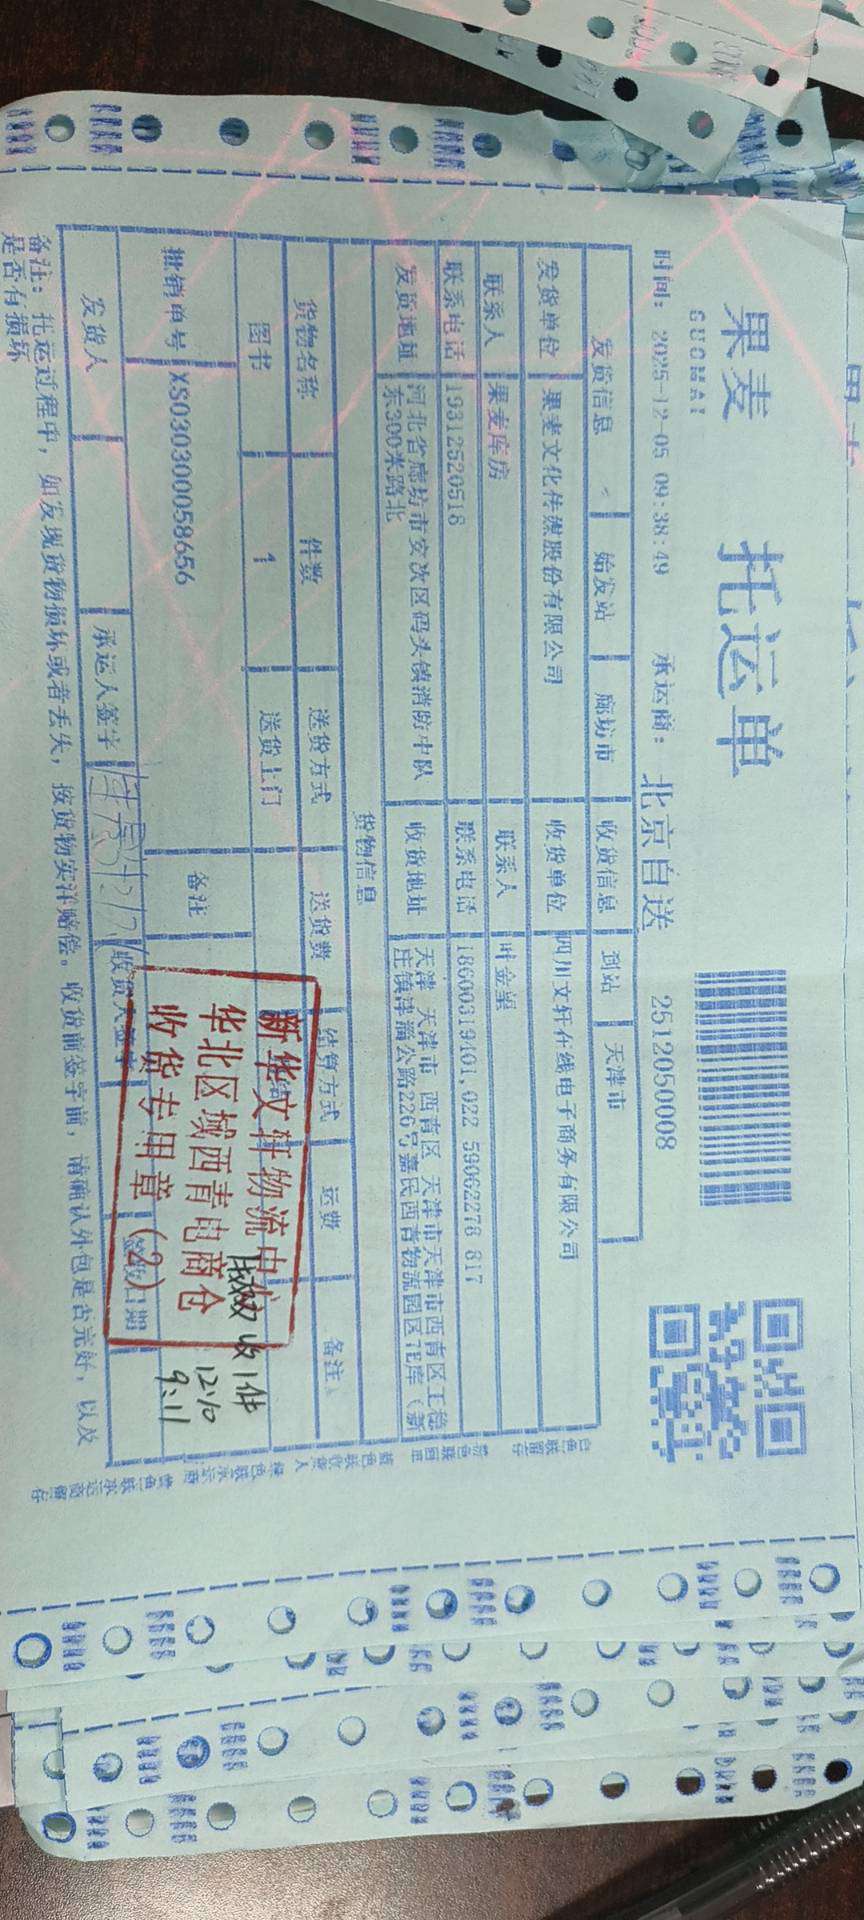 果麦 托运单
GUOMAI
时间: 2025-12-05 09:38:49 承运商: 北京自送 2512050008
发货信息 始发站 廊坊市 收货信息 到站 天津市
发货单位 果麦文化传媒股份有限公司 收货单位 四川文轩在线电子商务有限公司
联系人 果麦库房 联系人
联系电话 19312520516 联系电话 18600319401,022 59062278 817
发货地址 河北省廊坊市安次区码头镇消防中队东300米路北 收货地址 天津 天津市 西青区 天津市天津市西青区王稳庄镇津淄公路226号嘉民西青物流园区
货物信息
货物名称 件数 送货方式 送货费 结算方式 运费 备注
图书 1 送货上门
批销单号 XS030300058656 备注
发货人 承运人签字 收货人签字 签收日期
备注: 托运过程中, 如发现货物损坏或者丢失, 按货物实洋赔偿。收货前签字前, 请确认外包是否完好, 以及
是否有损坏
新华文轩物流中心
华北区域西青电商仓
收货专用章(2)
收1件
12.10
9:11